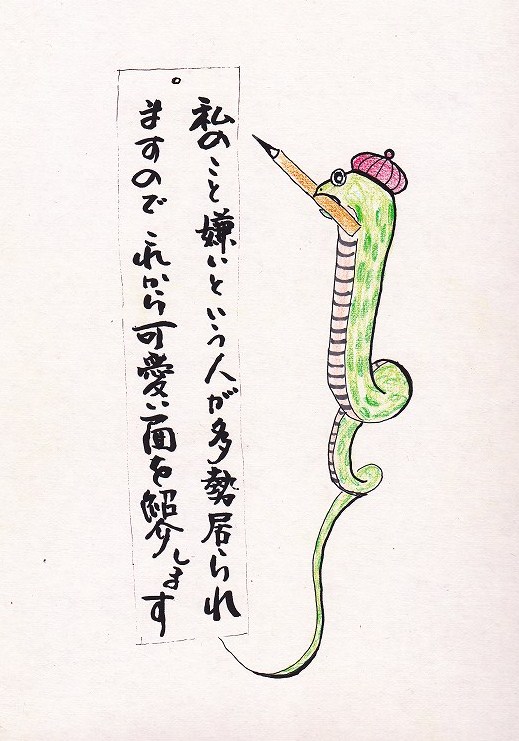 私のこと嫌いという人が多勢居られ
ますのでこれから可愛い面を紹介します